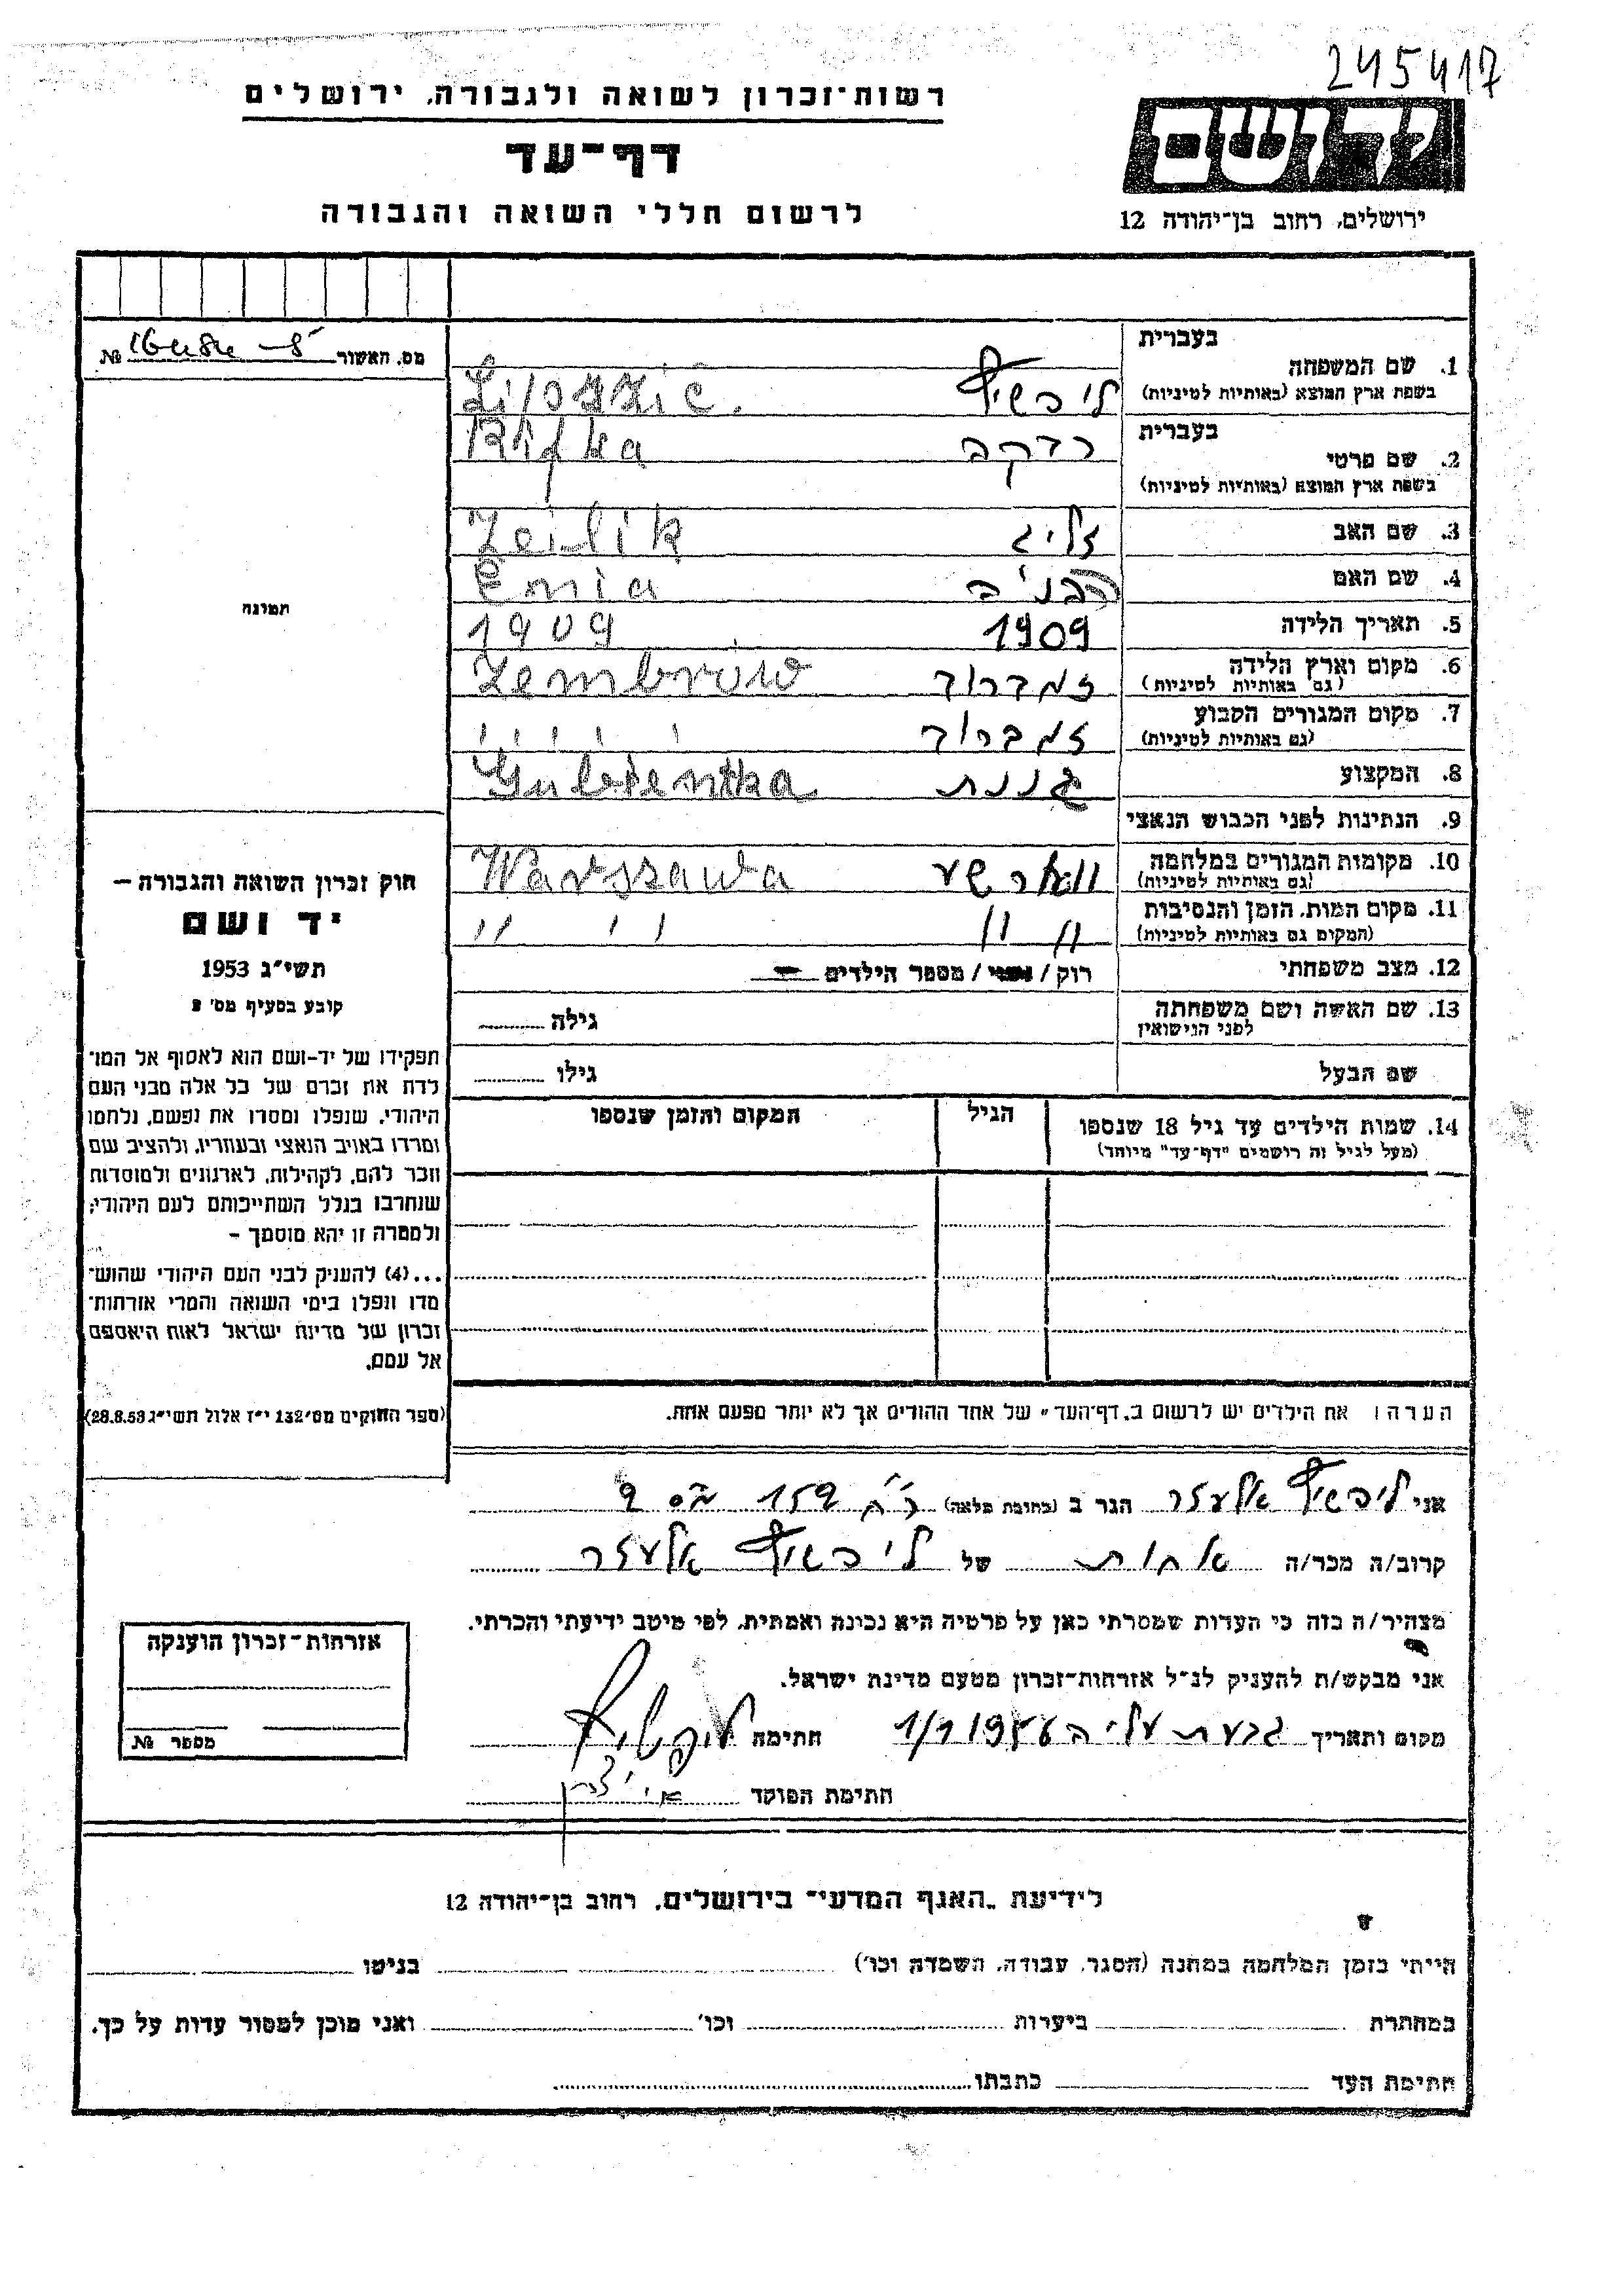 245417
רשות־זכרון לשואה ולגבורה, ירושלים
דף־עד
לרשום חללי השואה והגבורה
יד ושם
ירושלים, רחוב בן־יהודה 12
מס. האשור № 
בעברית
1. שם המשפחה
בשפת ארץ המוצא (באותיות לטיניות)
בעברית
2. שם פרטי רבקה
בשפת ארץ המוצא (באותיות לטיניות) Rifka
3. שם האב זליג Zeilik
4. שם האם Enia
5. תאריך הלידה 1909 1909
6. מקום וארץ הלידה זמברוב Zembrów
(גם באותיות לטיניות)
7. מקום המגורים הקבוע זמברוב
(גם באותיות לטיניות)
8. המקצוע גננת
9. הנתינות לפני הכבוש הנאצי
10. מקומות המגורים במלחמה Warszawa
(גם באותיות לטיניות)
11. מקום המות, הזמן והנסיבות
(המקום גם באותיות לטיניות)
12. מצב משפחתי רוק / נשוי / מספר הילדים
13. שם האשה ושם משפחתה גילה
לפני הנישואין
שם הבעל גילו
14. שמות הילדים עד גיל 18 שנספו הגיל המקום והזמן שנספו
(מעל לגיל זה רושמים "דף־עד" מיוחד)
הערה: את הילדים יש לרשום ב"דף־העד" של אחד ההורים אך לא יותר מפעם אחת.
תמונה
חוק זכרון השואה והגבורה –
יד ושם
תשי״ג 1953
קובע בסעיף מס׳ 2
תפקידו של יד–ושם הוא לאסוף אל המו־
לדת את זכרם של כל אלה מבני העם
היהודי, שנפלו ומסרו את נפשם, נלחמו
ומרדו באויב הנאצי ובעוזריו, ולהציב שם
וזכר להם, לקהילות, לארגונים ולמוסדות
שנחרבו בגלל השתייכותם לעם היהודי;
ולמטרה זו יהא מוסמך –
...(4) להעניק לבני העם היהודי שהוש־
מדו ונפלו בימי השואה והמרי אזרחות־
זכרון של מדינת ישראל לאות היאספם
אל עמם.
(ספר החוקים מס׳ 132 י״ז אלול תשי״ג 28.8.53)
אני ליפשיץ אלעזר הגר ב (כתובת מלאה) 159
קרוב/ה מכר/ה אחות של ליפשיץ אלעזר
מצהיר/ה בזה כי העדות שמסרתי כאן על פרטיה היא נכונה ואמתית, לפי מיטב ידיעתי והכרתי.
אני מבקש/ת להעניק לנ״ל אזרחות־זכרון מטעם מדינת ישראל.
מקום ותאריך גבעת עליה חתימה ליפשיץ
חתימת הפוקד
אזרחות־זכרון הוענקה
מספר №
לידיעת "האגף המדעי" בירושלים, רחוב בן־יהודה 12
הייתי בזמן המלחמה במחנה (הסגר, עבודה, השמדה וכו׳) בגיטו
במחתרת ביערות וכו׳ ואני מוכן למסור עדות על כך.
חתימת העד כתבתו